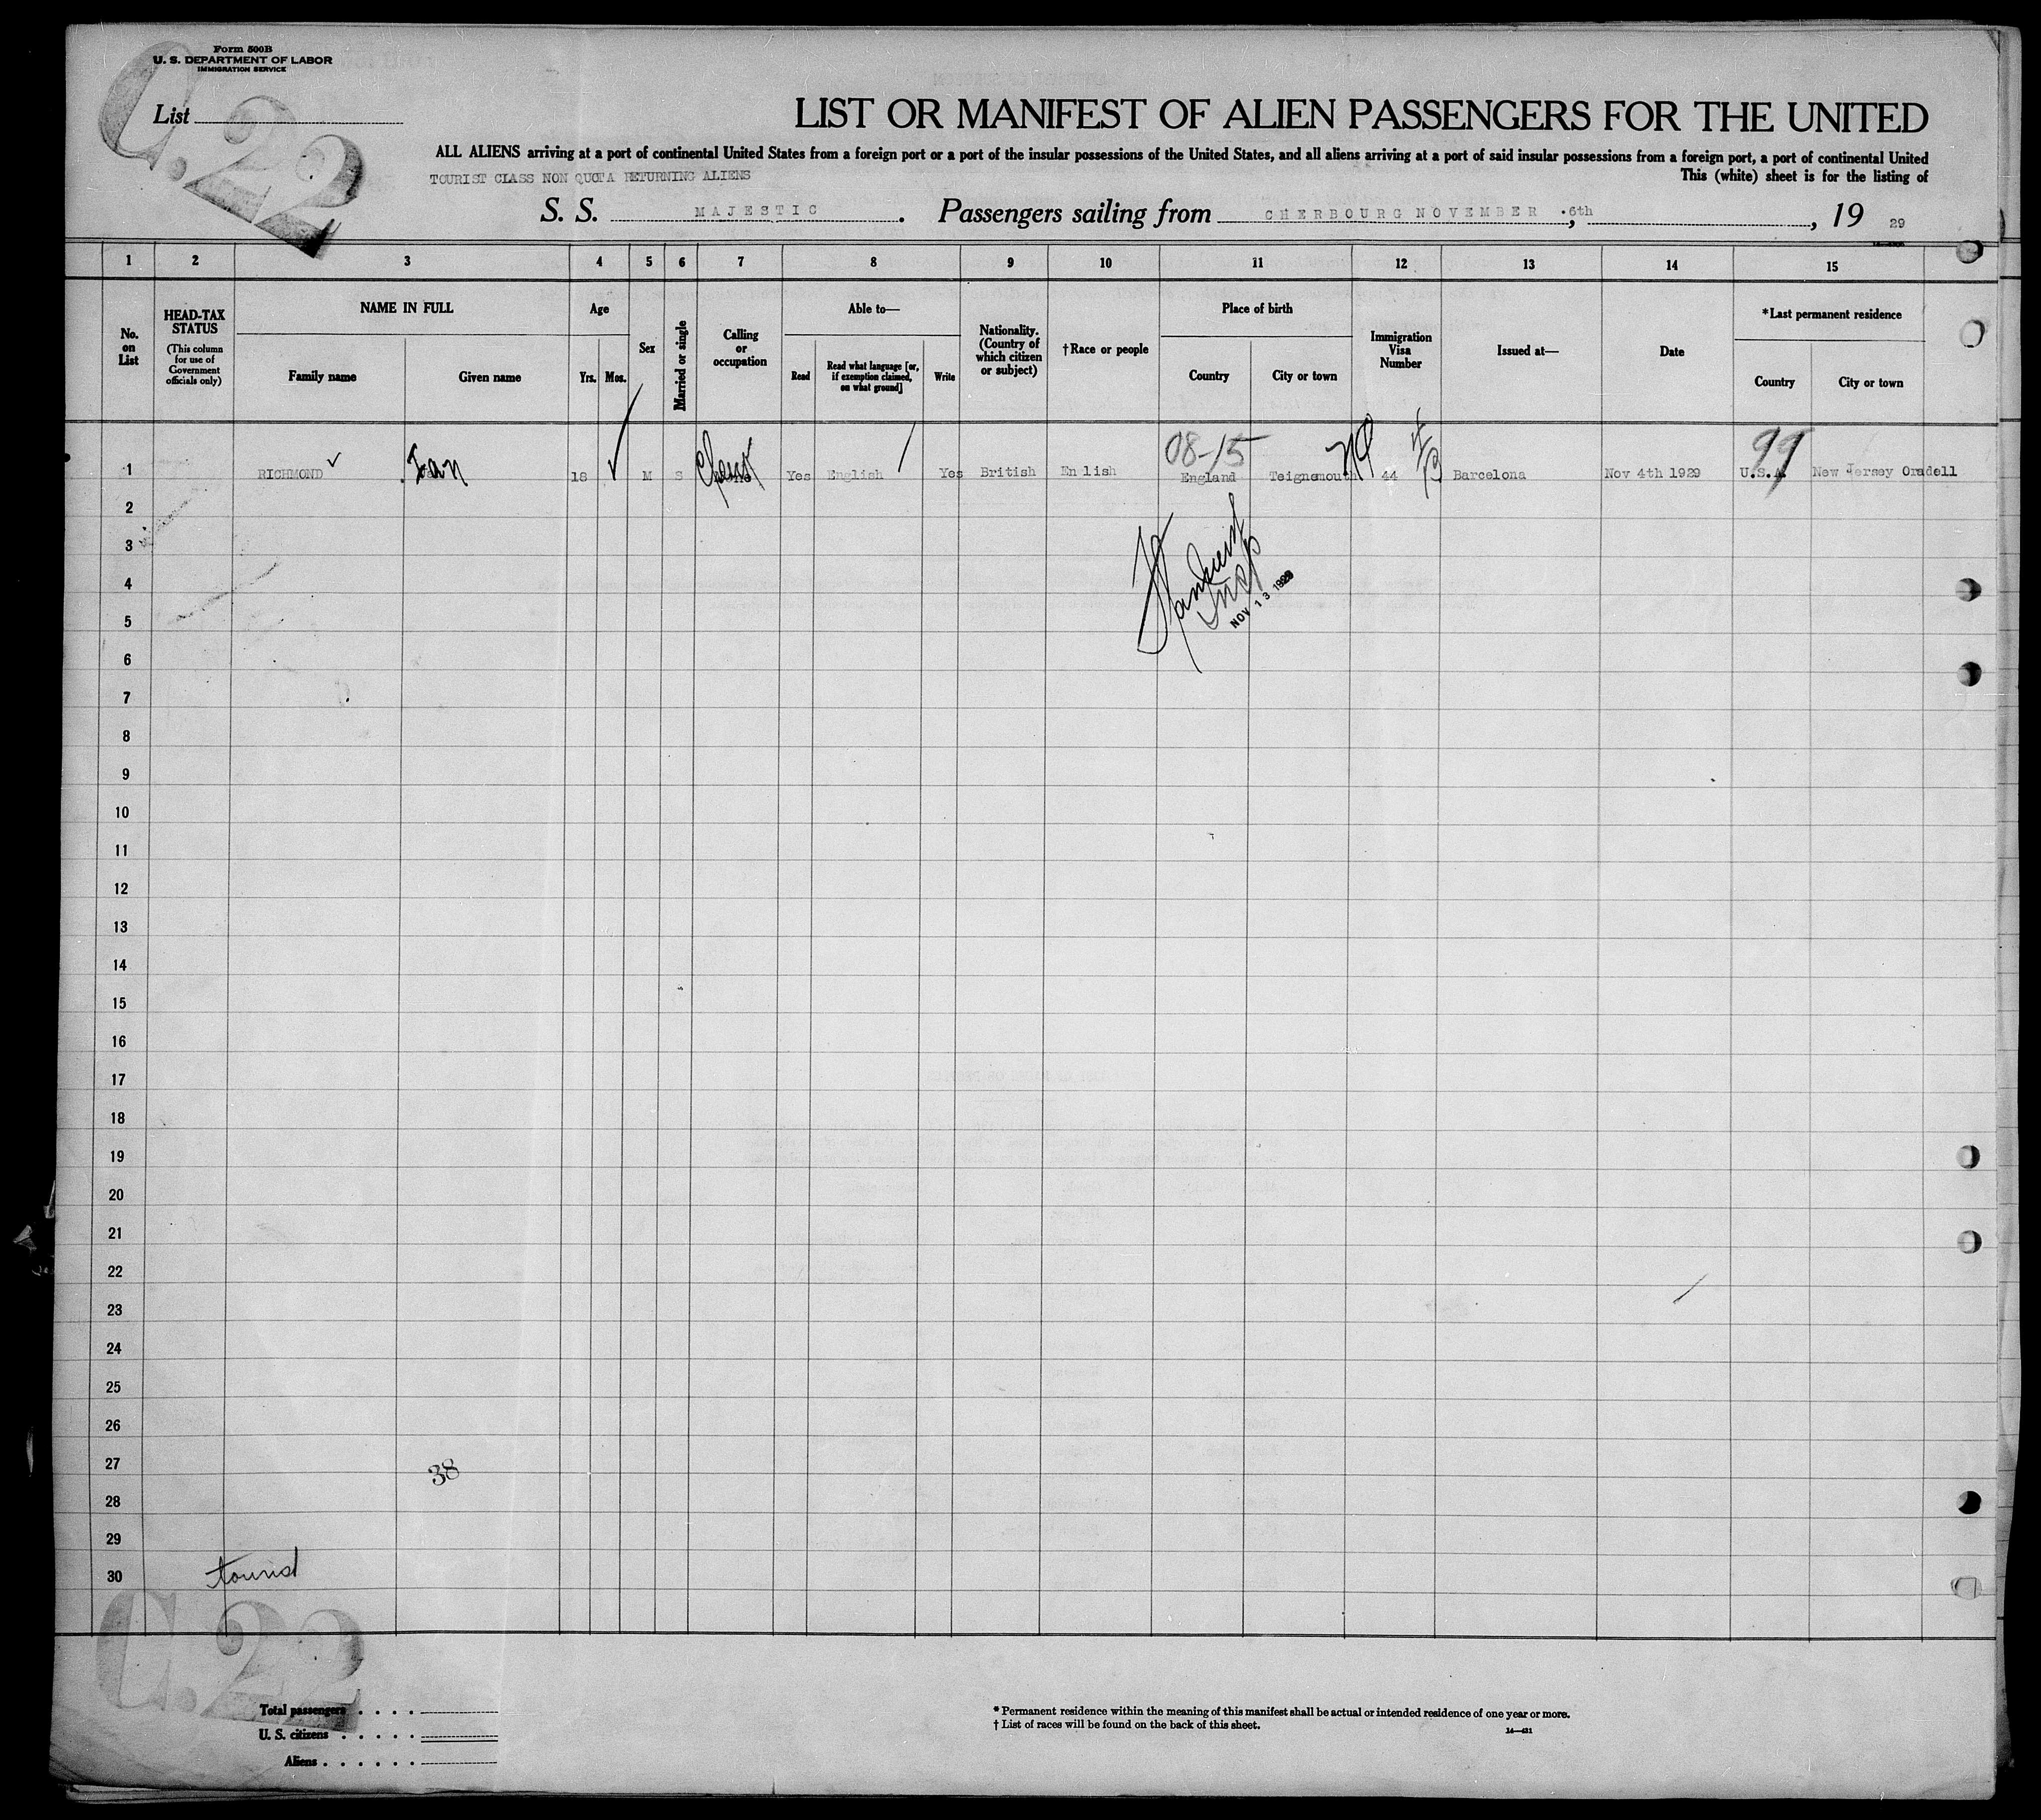 Form 500B
U. S. DEPARTMENT OF LABOR
IMMIGRATION SERVICE
C.22
List
LIST OR MANIFEST OF ALIEN PASSENGERS FOR THE UNITED
ALL ALIENS arriving at a port of continental United States from a foreign port or a port of the insular possessions of the United States, and all aliens arriving at a port of said insular possessions from a foreign port, a port of continental United
TOURIST CLASS NON QUOTA RETURNING ALIENS
This (white) sheet is for the listing of
S. S. MAJESTIC . Passengers sailing from CHERBOURG NOVEMBER .6th, , 19 29
1 2 3 4 5 6 7 8 9 10 11 12 13 14 15
No. on List
HEAD-TAX STATUS
(This column for use of Government officials only)
NAME IN FULL
Family name
Given name
Age
Yrs.
Mos.
Sex
Married or single
Calling or occupation
Able to—
Read
Read what language [or, if exemption claimed, on what ground]
Write
Nationality. (Country of which citizen or subject)
†Race or people
Place of birth
Country
City or town
Immigration Visa Number
Issued at—
Date
*Last permanent residence
Country
City or town
08-15
99
1 RICHMOND Ian 18 M S Yes English Yes British En lish England Teignemouth 44 Barcelona Nov 4th 1929 U.S.A. New Jersey Oradell
2
3
4
Insp
NOV 13 1929
5
6
7
8
9
10
11
12
13
14
15
16
17
18
19
20
21
22
23
24
25
26
27
38
28
29
30
tourist
C.22
Total passengers
U. S. citizens
Aliens
* Permanent residence within the meaning of this manifest shall be actual or intended residence of one year or more.
† List of races will be found on the back of this sheet.
14—421